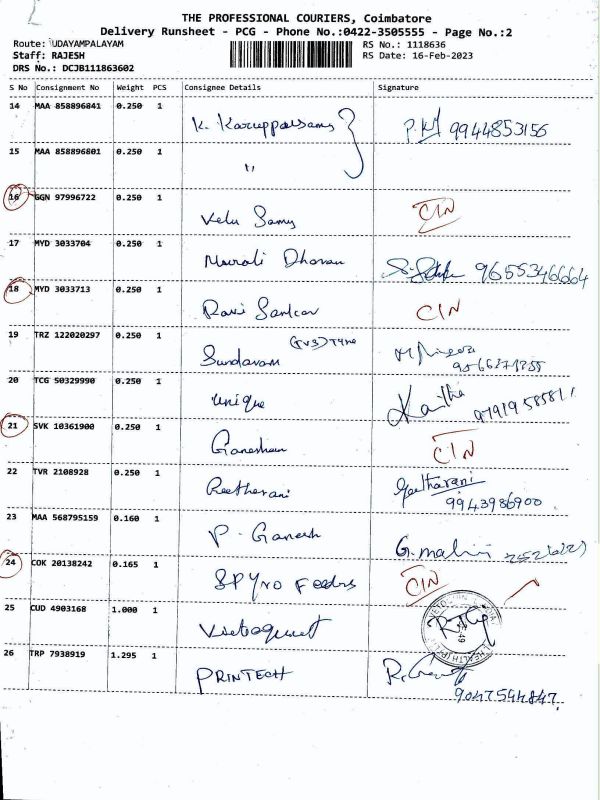 THE PROFESSIONAL COURIERS, Coimbatore
Delivery Runsheet - PCG - Phone No.:0422-3505555 - Page No.:2
Route: UDAYAMPALAYAM RS No.: 1118636
Staff: RAJESH RS Date: 16-Feb-2023
DRS No.: DCJB111863602
S No Consignment No Weight PCS Consignee Details Signature
14 MAA 858896841 0.250 1
K. Karuppalsamy P.K 9944853156
15 MAA 858896801 0.250 1
"
16 GGN 97996722 0.250 1
Velu Samy CIN
17 MYD 3033704 0.250 1
Murali Dharan 9655346664
18 MYD 3033713 0.250 1
Ravi Sankar CIN
19 TRZ 122020297 0.250 1
(TVS) Tyre
Sundaram
20 TCG 50329990 0.250 1
unique Kavitha
21 SVK 10361900 0.250 1
Ganeshan CIN
22 TVR 2108928 0.250 1
Geetharani Geetharani
9943986900
23 MAA 568795159 0.160 1
P. Ganesh G. malini
24 COK 20138242 0.165 1
SPYRO Feeds CIN
25 CUD 4903168 1.000 1
26 TRP 7938919 1.295 1
PRINTECH
9047544847